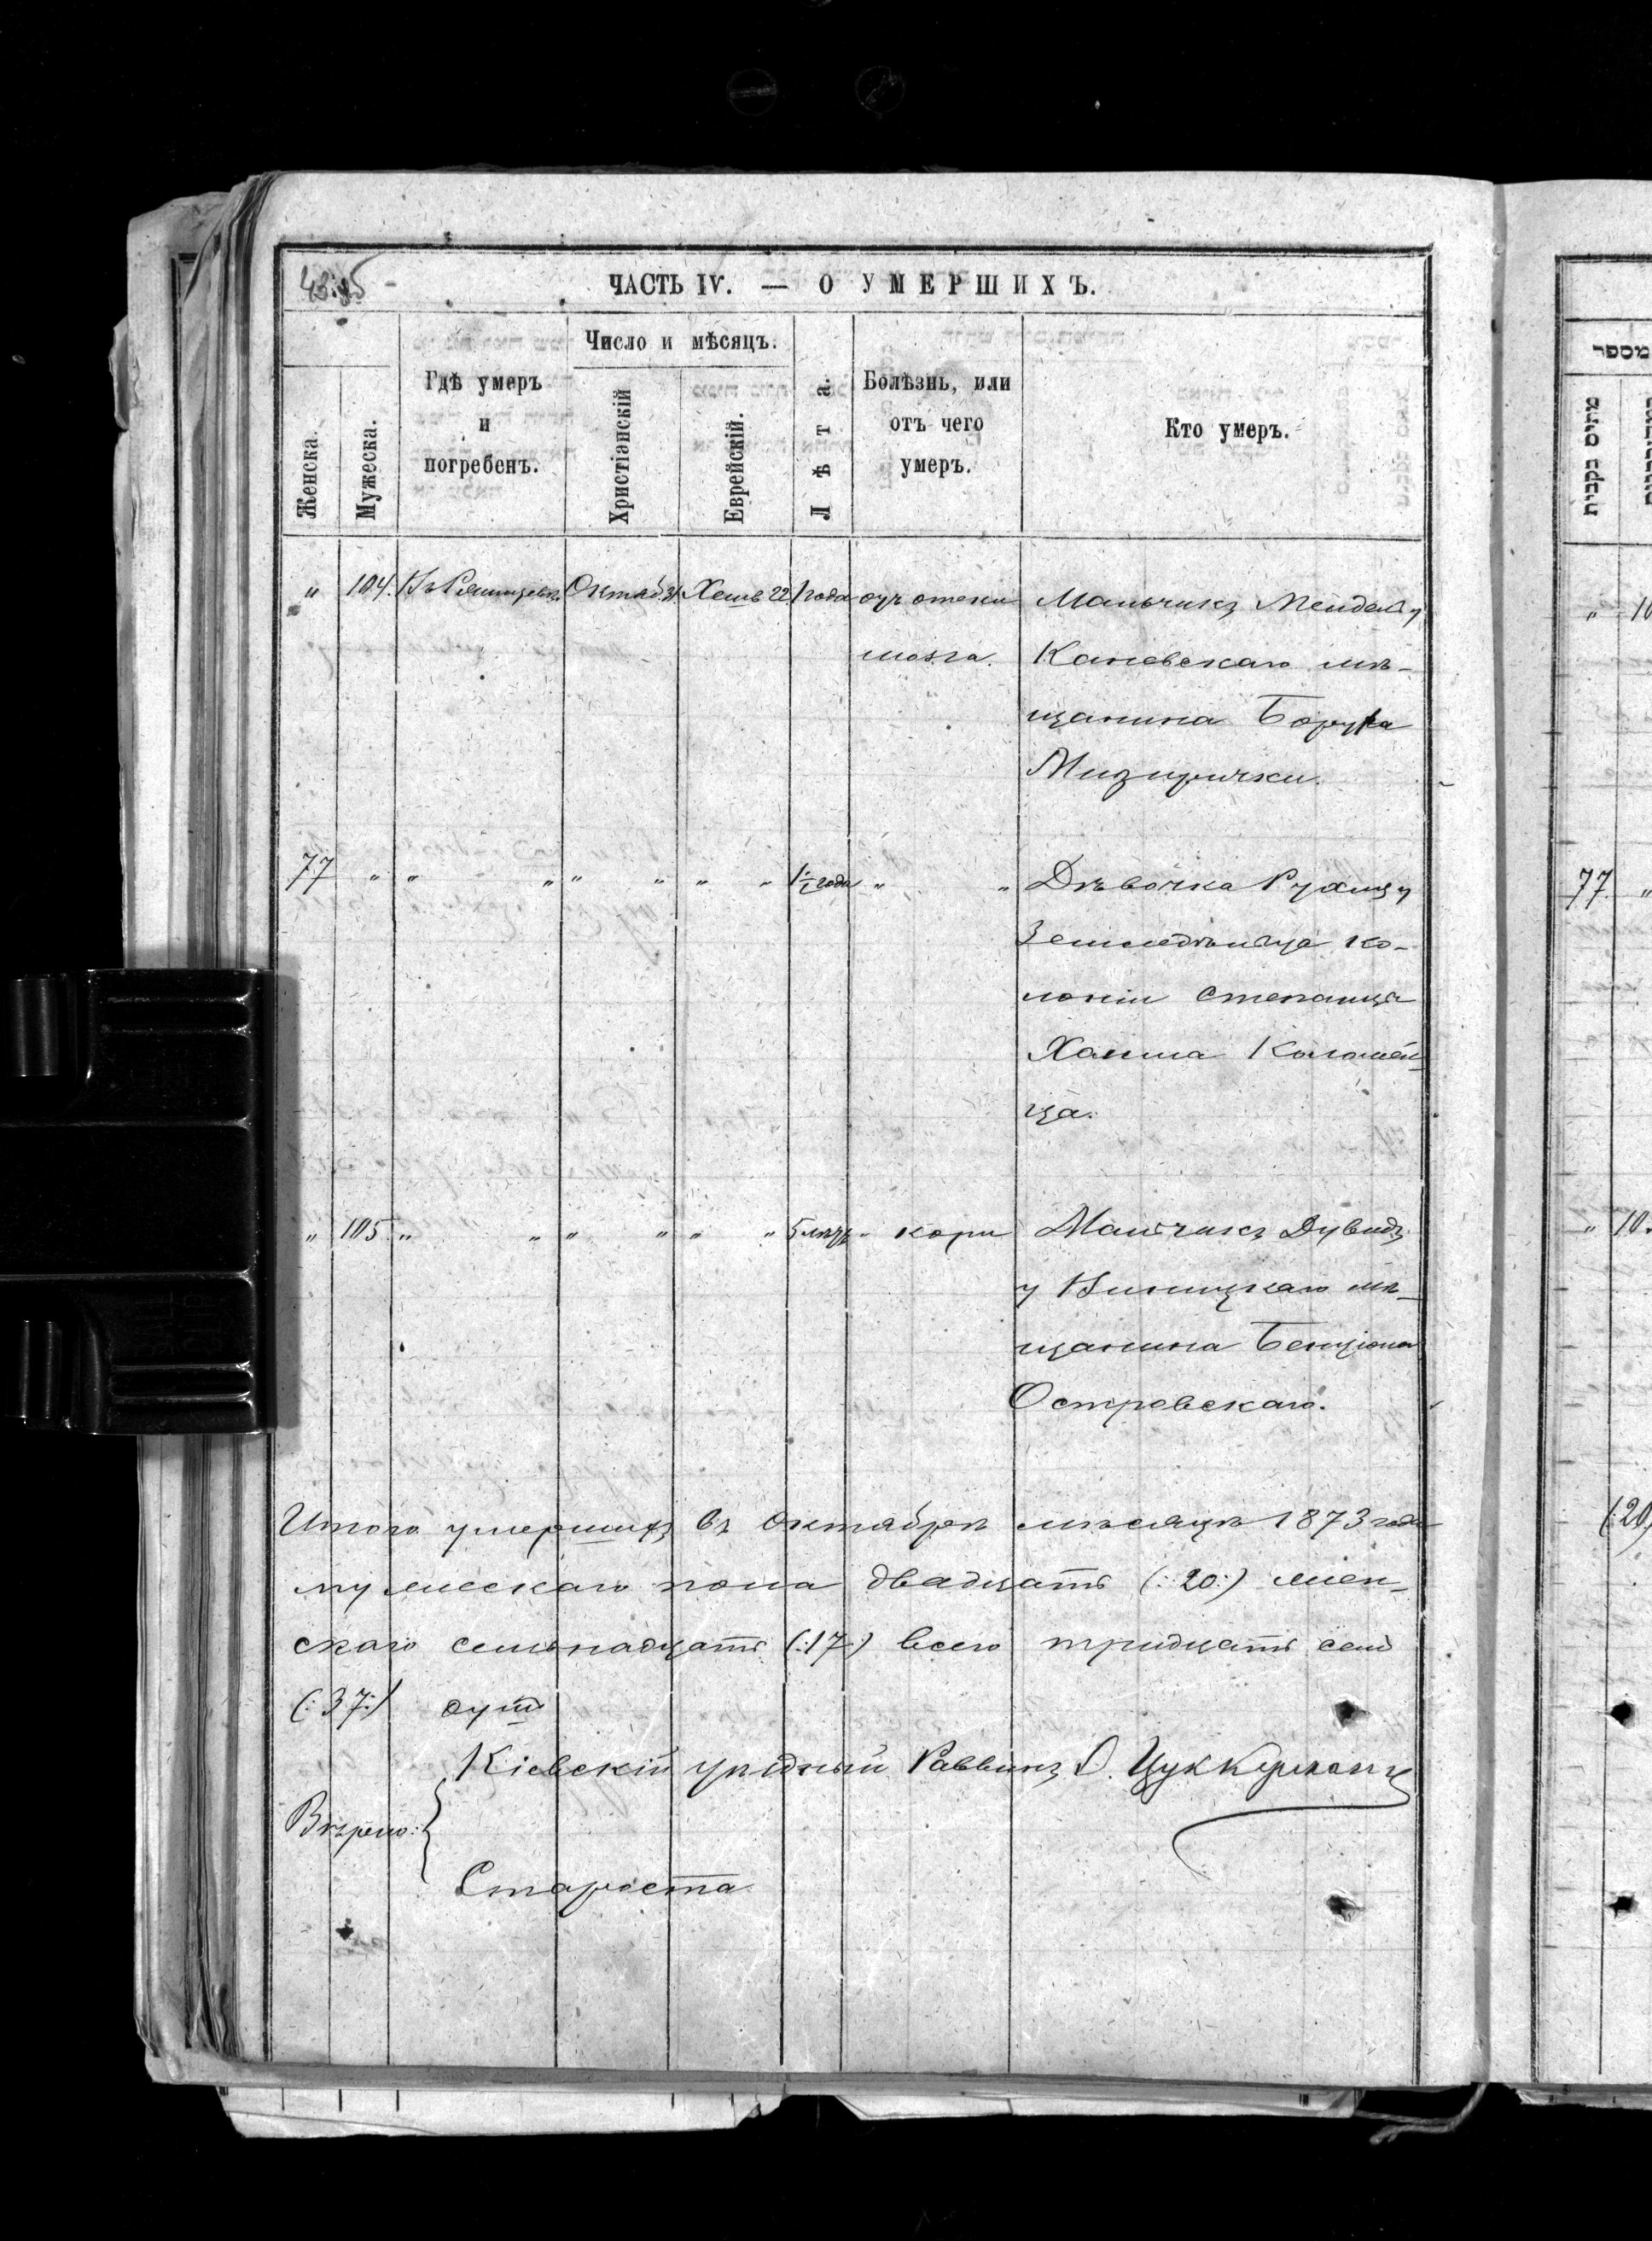 ЧАСТЬ IV. — О УМЕРШИХЪ.
Женска.
Мужеска.
Гдѣ умеръ
и
погребенъ.
Число и мѣсяцъ.
Христіанскій
Еврейскій.
Лѣта.
Болѣзнь, или
отъ чего
умеръ.
Кто умеръ.
" 104. Октяб 31 Хешв 22 1 года отъ отека Мальчикъ Мендель у
мозга. Каневскаго мѣ-
щанина Боруха
Мизирички.
77 " " " " " " " 1½ года " " Дѣвочка Рухля у
Земледѣльца ко-
лоніи Степанца
Хаима Коломей-
ца.
" 105 " " " " " " 5 лѣтъ " кори Мальчикъ Дувидъ
у Виницкаго мѣ-
щанина Бенціона
Островскаго.
Итого умершихъ въ Октябрѣ мѣсяцѣ 1873 года
мужескаго пола двадцать (:20:) жен-
скаго семьнадцать (:17:) всего тридцать семь
(:37:) душъ
Кіевскій уѣздный Раввинъ Цуккерманъ
Вѣрно:
Староста
מספר
מתים נקבות
" 10
77. "
" 10
(:20